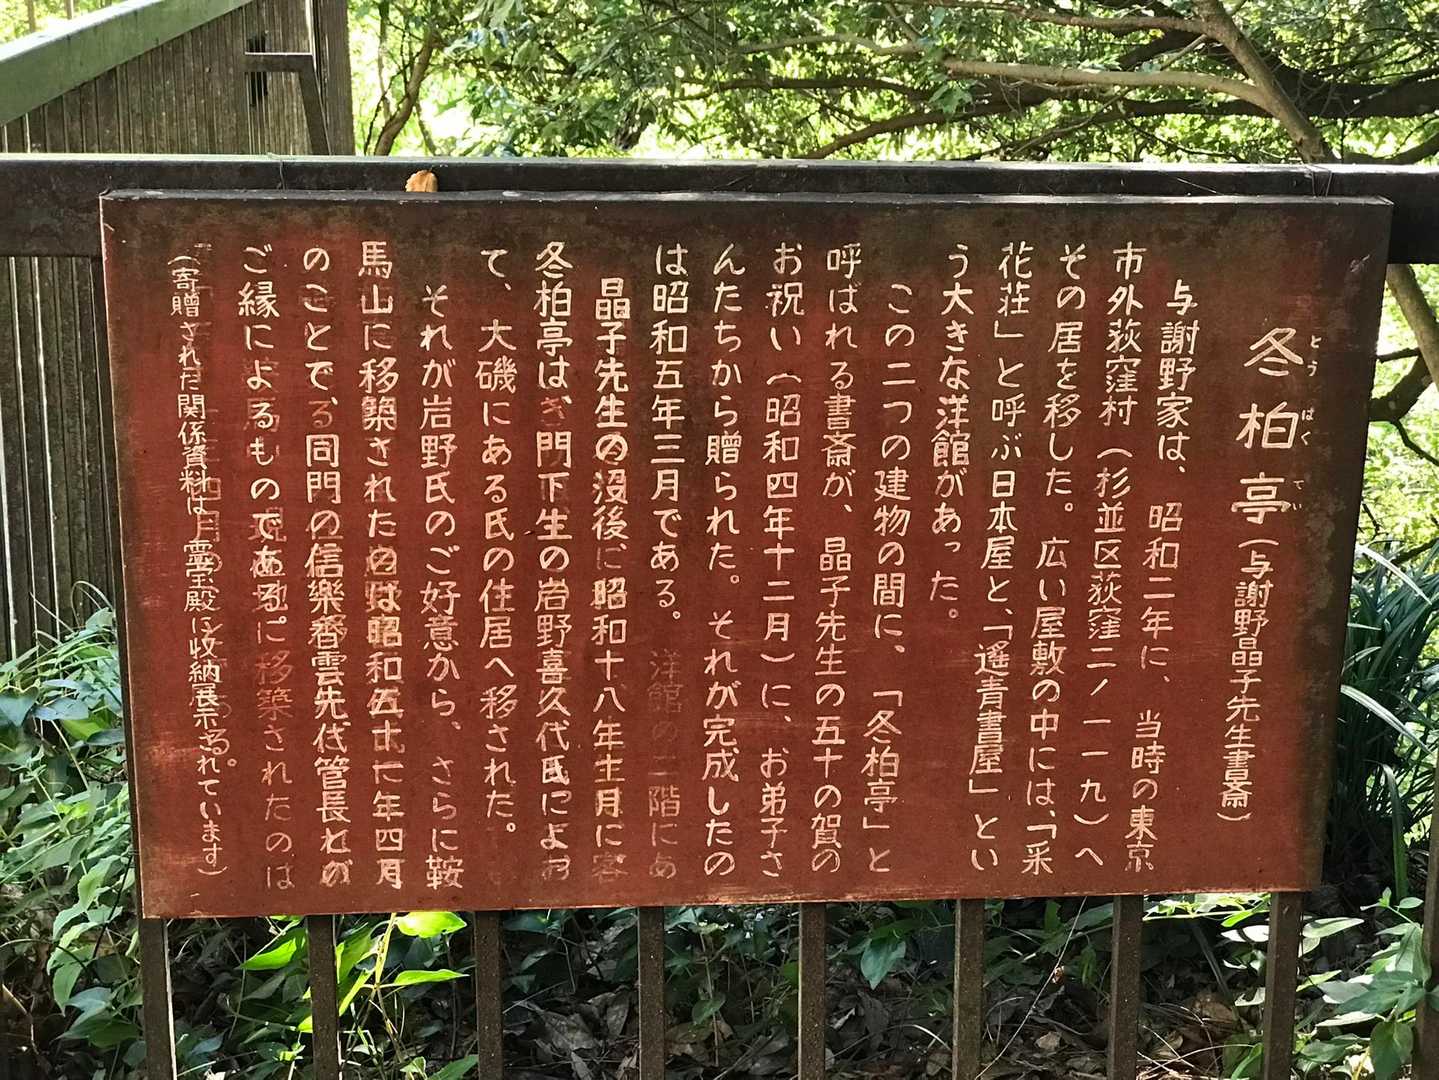 冬柏亭(与謝野晶子先生書斎)
とうはくてい
与謝野家は、昭和二年に、当時の東京
市外荻窪村(杉並区荻窪二ノ一一九)へ
その居を移した。広い屋敷の中には、「采
花荘」と呼ぶ日本屋と、「遙青書屋」とい
う大きな洋館があった。
この二つの建物の間に、「冬柏亭」と
呼ばれる書斎が、晶子先生の五十の賀の
お祝い(昭和四年十二月)に、お弟子さ
んたちから贈られた。それが完成したの
は昭和五年三月である。
晶子先生の没後、昭和十八年
冬柏亭は、門下生の岩野喜久代氏によっ
て、大磯にある氏の住居へ移された。
それが岩野氏のご好意から、さらに鞍
馬山に移築されたのは昭和五十一年四月
のことで、同門の信樂香雲先代管長
ご縁によるものである。
(寄贈された関係資料は、霊宝殿に収納展示されています)